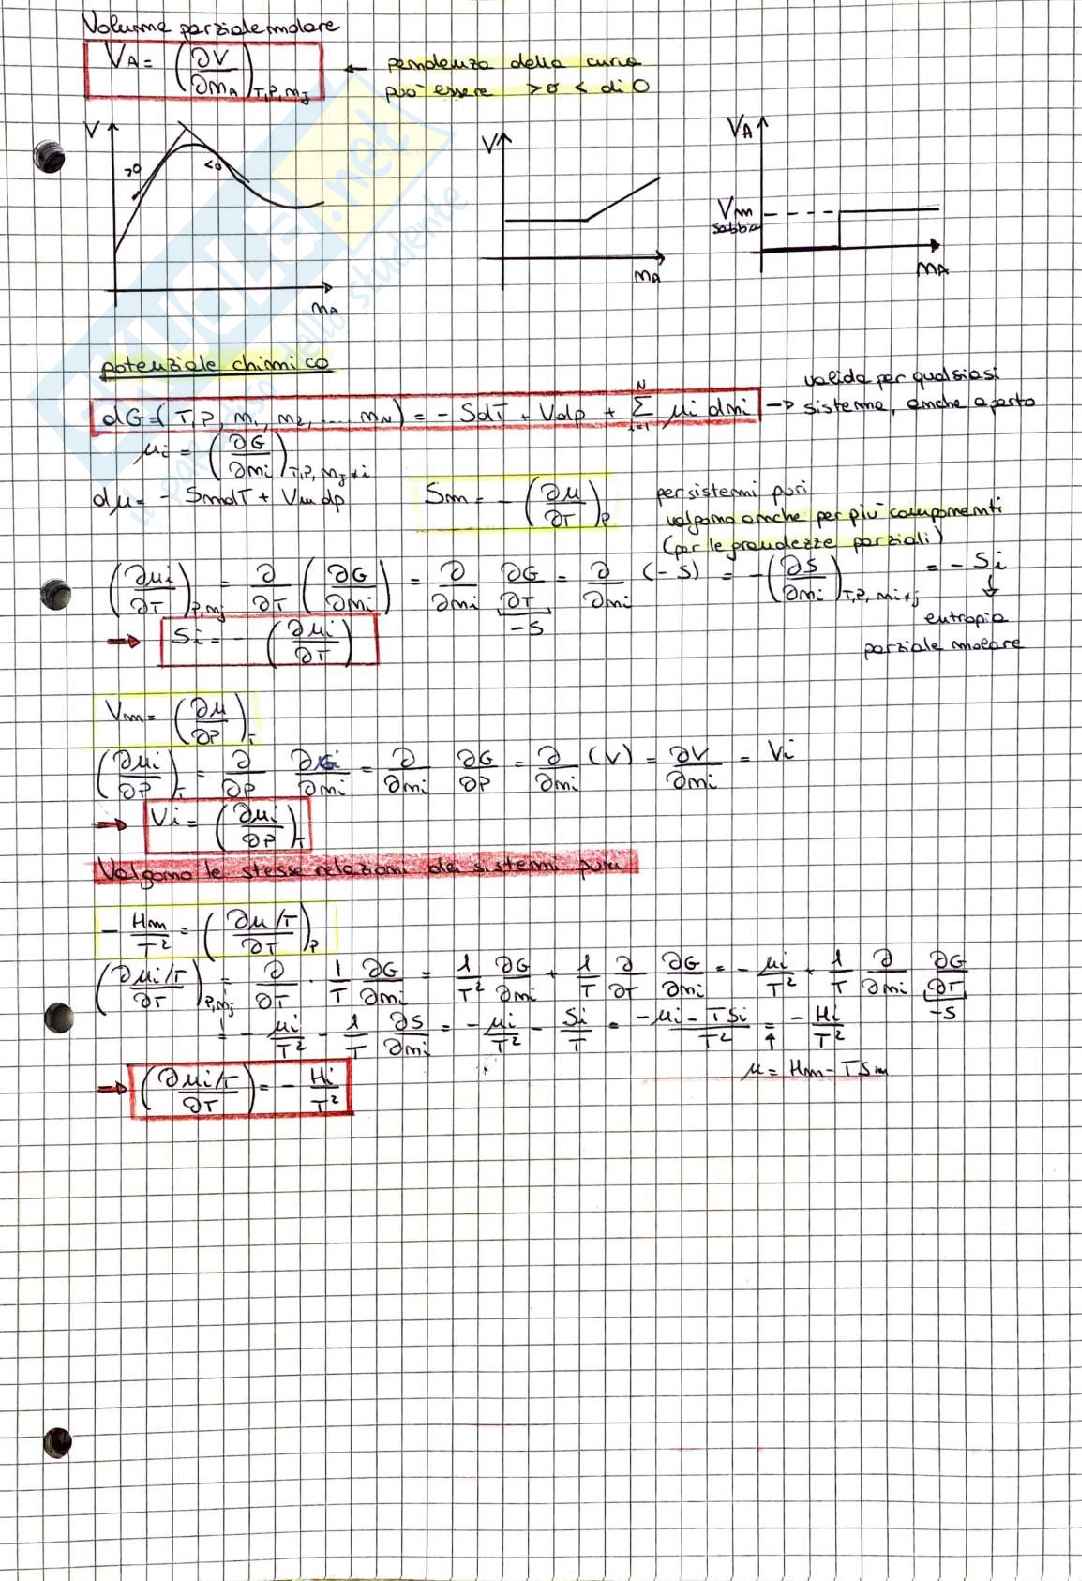 Volume parziale molare
VA = (∂V/∂nA)T,P,nJ ← pendenza della curva
può essere > o < di 0
V
>0
<0
nA
V
nA
VA
Vm
sabbia
nA
potenziale chimico
dG=(T,P,n1,n2,....nN) = - SdT + Vdp + Σ i=1 N μi dni → valida per qualsiasi
sistema, anche aperto
μi = (∂G/∂ni)T,P,nJ≠i
dμ = - SmdT + Vm dp
Sm = - (∂μ/∂T)P
per sistemi puri
valgono anche per più componenti
(per le grandezze parziali)
(∂μi/∂T)P,nj = ∂/∂T (∂G/∂ni) = ∂/∂ni ∂G/∂T = ∂/∂ni (-S) = -(∂S/∂ni)T,P,ni≠j = - Si
-S
↓
entropia
parziale molare
→ Si = - (∂μi/∂T)
Vm = (∂μ/∂P)T
(∂μi/∂P)T = ∂/∂P ∂G/∂ni = ∂/∂ni ∂G/∂P = ∂/∂ni (V) = ∂V/∂ni = Vi
→ Vi = (∂μi/∂P)T
Valgono le stesse relazioni dei sistemi puri
- Hm/T² = (∂μ/T/∂T)P
(∂μi/T/∂T)P,nj = ∂/∂T · 1/T ∂G/∂ni = 1/T² ∂G/∂ni + 1/T ∂/∂T ∂G/∂ni = - μi/T² + 1/T ∂/∂ni ∂G/∂T
-S
= - μi/T² - 1/T ∂S/∂ni = - μi/T² - Si/T = -μi - TSi/T² = - Hi/T²
↑
μ = Hm - TSm
→ (∂μi/T/∂T) = - Hi/T²